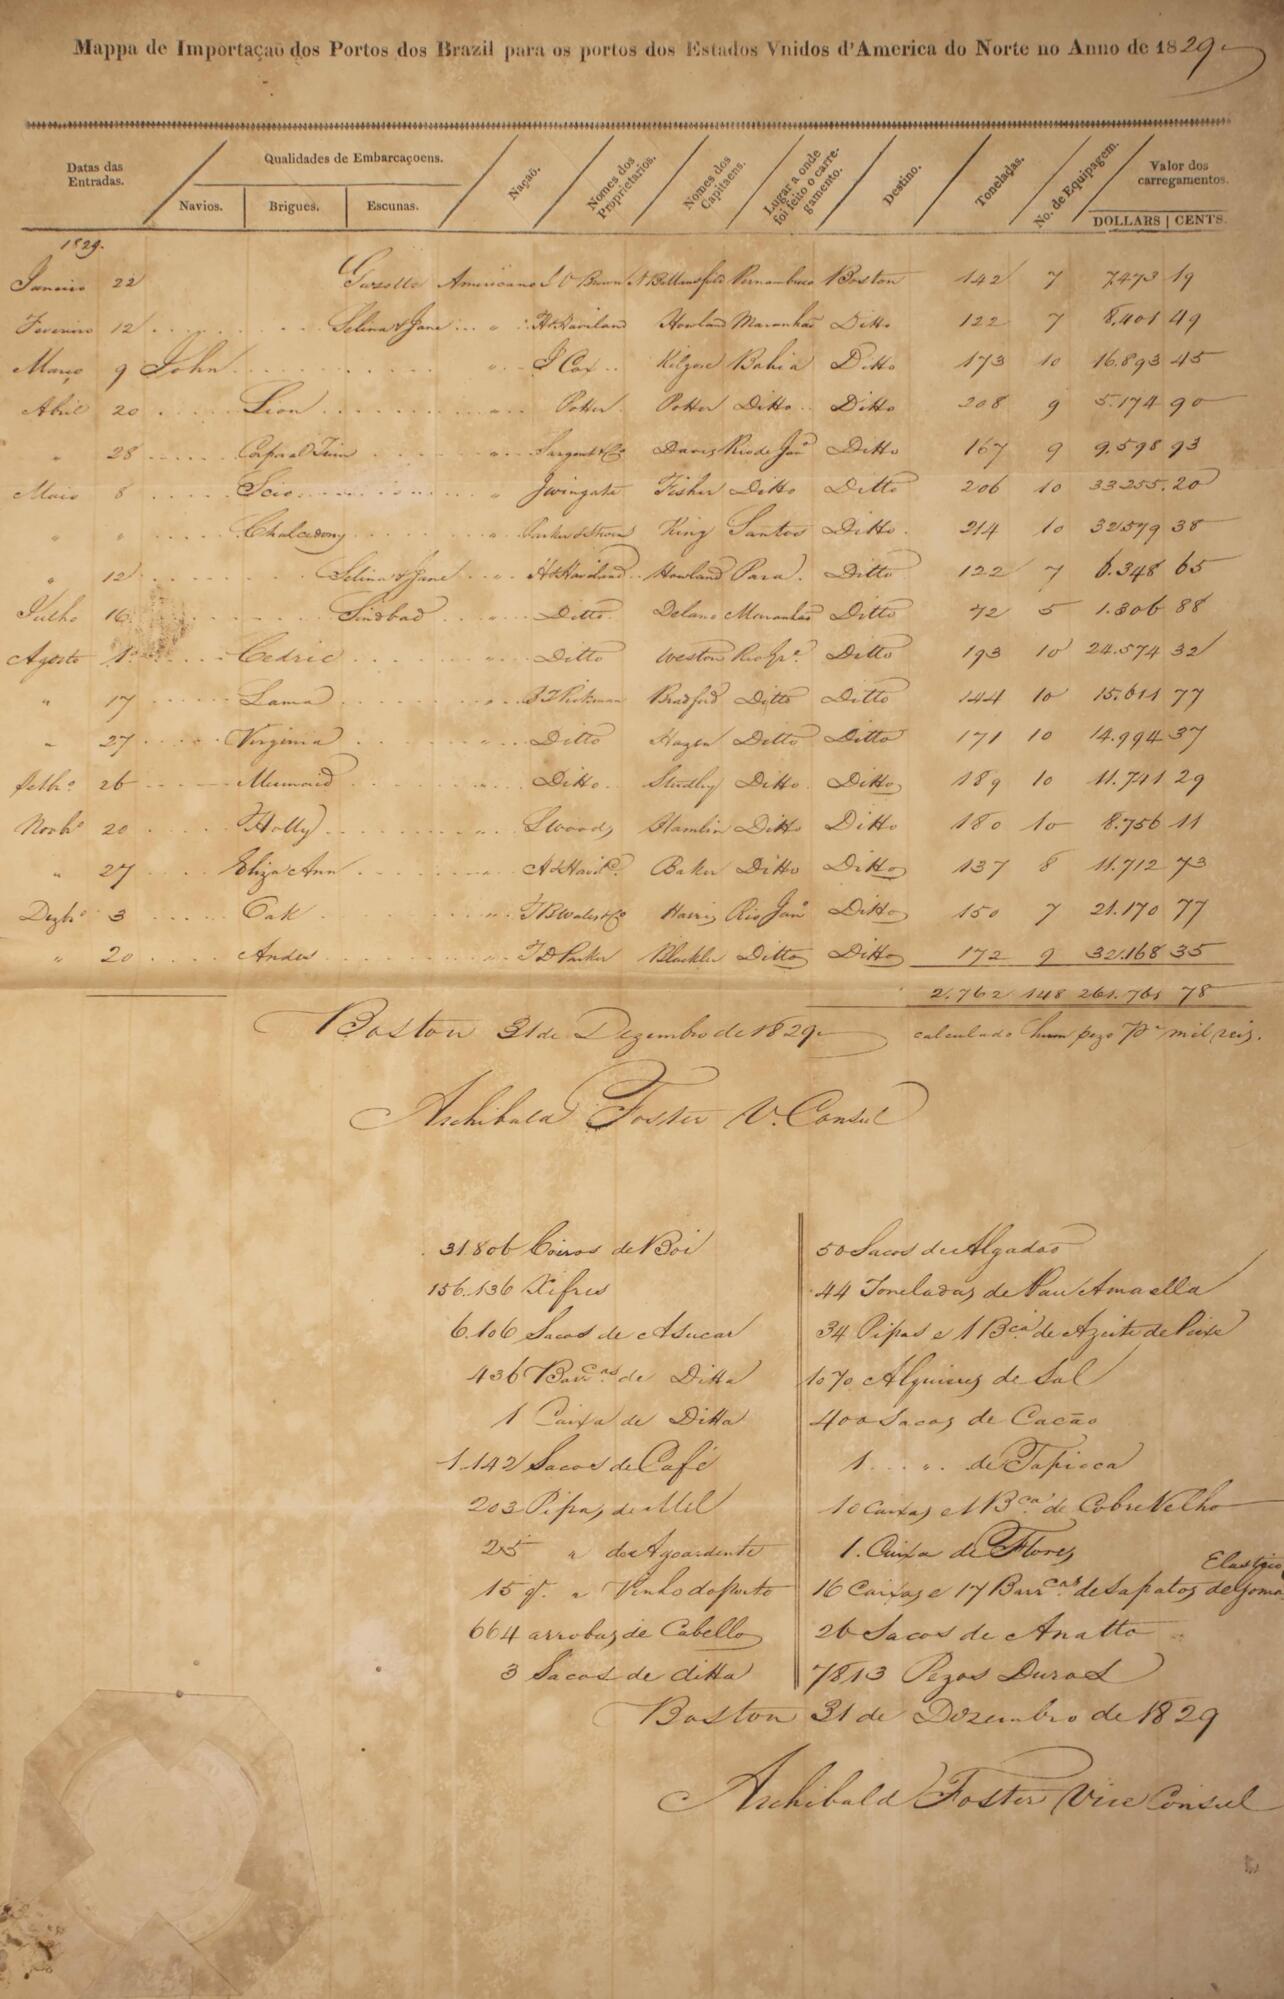 Mappa de Importaçaõ dos Portos dos Brazil para os portos dos Estados Vnidos d'America do Norte no Anno de 1829
Datas das Entradas. Qualidades de Embarcaçoens. Navios. Brigues. Escunas. Nação. Nomes dos Proprietarios. Nomes dos Capitaens. Lugar a onde foi feito o carregamento. Destino. Toneladas. No. de Equipagem. Valor dos carregamentos. DOLLARS | CENTS.
1829.
Janeiro 22 Americano Pernambuco Boston 142 7 7473 19
Fevereiro 12 Selina & Jane " Howland Maranhaõ Ditto 122 7 8,401 49
Março 9 John " J Cox Kilgore Bahia Ditto 173 10 16.893 45
Abril 20 Lion " Potter Potter Ditto Ditto 208 9 5.174 90
" 28 " Sargent & Co Davis Rio de Janº Ditto 167 9 9.598 93
Maio 8 Scio " Jwingate Fisher Ditto Ditto 206 10 33255.20
" " Chalcedony " King Santos Ditto 214 10 32579 38
" 12 Selina & Jane " Howland Para. Ditto 122 7 6.348 65
Julho 16 Sindbad " Ditto Delano Maranhaõ Ditto 72 5 1.306 88
Agosto 1º Cedric " Ditto Weston Ditto 193 10 24.574 32
" 17 Lama " Bradford Ditto Ditto 144 10 15.611 77
" 27 Virginia " Ditto Hazen Ditto Ditto 171 10 14.994 37
26 Mermaid " Ditto Studley Ditto Ditto 189 10 11.741 29
Novbº 20 Holly " S Woods Hamlin Ditto Ditto 180 10 8.756 11
" 27 Eliza Ann " Baker Ditto Ditto 137 8 11.712 73
Dezbº 3 Oak " T B Wales & Co Harris Rio Janº Ditto 150 7 21.170 77
" 20 Andes " T D Parker Blackler Ditto Ditto 172 9 32.168 35
2.762 148 261.761 78
Boston 31 de Dezembro de 1829 calculado hum pezo Pr mil reis.
Archibald Foster V. Consul
31806 Coiros de Boi
156.136 Xifres
6.106 Sacos de Asucar
436 Barr.cas de Ditta
1 Caixa de Ditta
1.142 Sacos de Café
203 Pipas de Mel
25 " de Agoardente
15 qr. " Vinho do porto
664 arrobas de Cabello
3 Sacos de ditta
50 Sacos de Algadaõ
44 Toneladas de Pau Amaella
34 Pipas e 1 Bca de Azeite de Peixe
1070 Alquieres de Sal
400 Sacos de Cacāo
1 " de Tapioca
10 Caixas e 1 Bca de Cobre Velho
1. Caixa de Flores
16 Caixas e 17 Barr.cas de Sapatos de goma Elastica
26 Sacos de Anatto
7813 Pezos Duros
Boston 31 de Dezembro de 1829
Archibald Foster Vice Consul